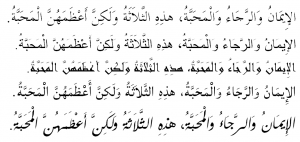 الإِيمَانُ وَالرَّجَاءُ وَالْمَحَبَّةُ، هذِهِ الثَّلاَثَةُ وَلكِنَّ أَعْظَمَهُنَّ الْمَحَبَّةُ.
الإِيمَانُ وَالرَّجَاءُ وَالْمَحَبَّةُ، هذِهِ الثَّلاَثَةُ وَلكِنَّ أَعْظَمَهُنَّ الْمَحَبَّةُ.
الإِيمَانُ وَالرَّجَاءُ وَالْمَحَبَّةُ، هذِهِ الثَّلاَثَةُ وَلكِنَّ أَعْظَمَهُنَّ الْمَحَبَّةُ.
الإِيمَانُ وَالرَّجَاءُ وَالْمَحَبَّةُ، هذِهِ الثَّلاَثَةُ وَلكِنَّ أَعْظَمَهُنَّ الْمَحَبَّةُ.
الإِيمَانُ وَالرَّجَاءُ وَالْمَحَبَّةُ، هذِهِ الثَّلاَثَةُ وَلكِنَّ أَعْظَمَهُنَّ الْمَحَبَّةُ.